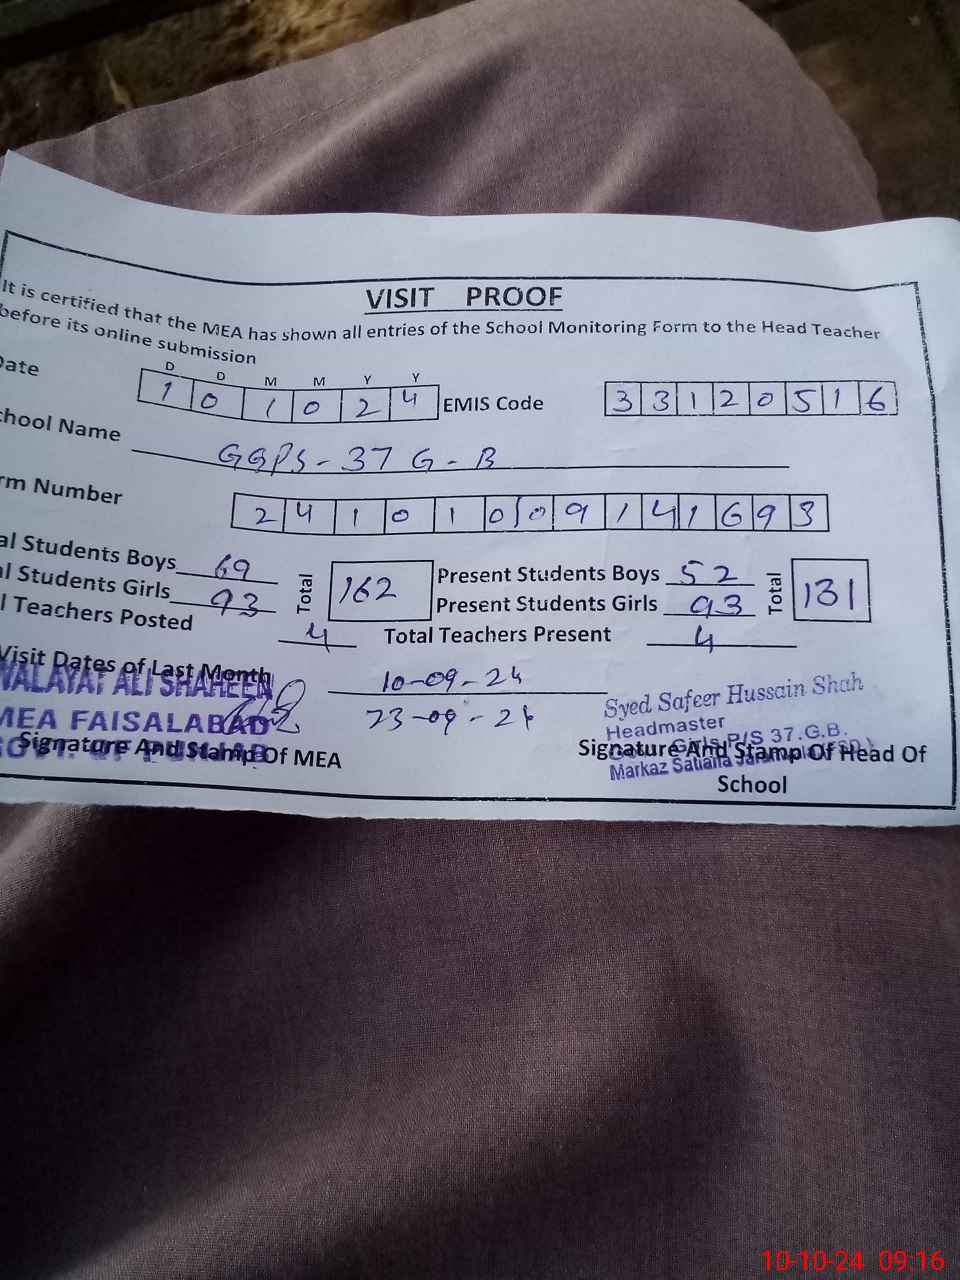 VISIT PROOF
It is certified that the MEA has shown all entries of the School Monitoring Form to the Head Teacher
before its online submission
D D M M Y Y
Date 1 0 1 0 2 4 EMIS Code 3 3 1 2 0 5 1 6
chool Name GGPS - 37 G - B
rm Number 2 4 1 0 1 0 0 9 1 4 1 6 9 3
al Students Boys 69 Total 162 Present Students Boys 52 Total 131
al Students Girls 93 Present Students Girls 93
l Teachers Posted 4 Total Teachers Present 4
Visit Dates of Last Month 10-09-24
23-09-24
WALAYAT ALI SHAHEEN
MEA FAISALABAD
GOVT. OF PUNJAB
Signature And Stamp Of MEA
Syed Safeer Hussain Shah
Headmaster
Girls P/S 37.G.B.
Markaz Satiana
Signature And Stamp Of Head Of
School
10-10-24 09:16